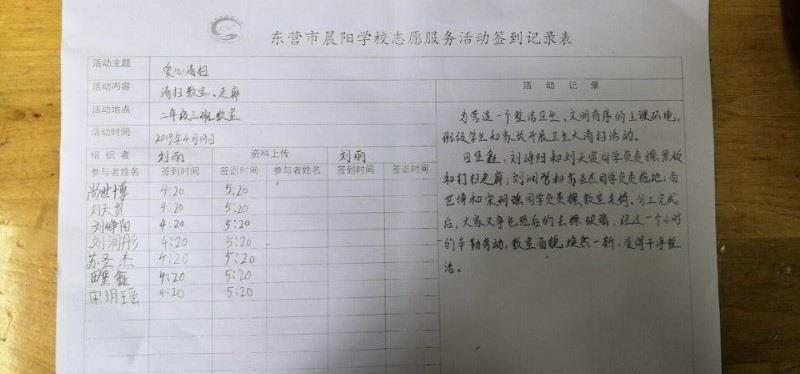 东营市晨阳学校志愿服务活动签到记录表
活动主题 爱心清扫
活动内容 清扫教室、走廊
活动地点 二年级三班教室
活动时间 2019年4月19日
组织者 刘雨 资料上传 刘雨
参与者姓名 签到时间 签退时间 参与者姓名 签到时间 签退时间
尚世博 4:20 5:20
刘天 4:20 5:20
刘峰阳 4:20 5:20
刘润彤 4:20 5:20
苏圣杰 4:20 5:20
田 鑫 4:20 5:20
宋玥瑶 4:20 5:20
活动记录
为营造一个整洁卫生、文明有序的上课环境,
班级学生和家长开展卫生大清扫活动。
田 鑫、刘峰阳和刘天 同学负责擦黑板
和打扫走廊;刘润彤和苏圣杰同学负责拖地;尚
世博和宋玥瑶同学负责擦教室桌椅,分工完成
后,大家又争先恐后的去擦玻璃,经过一个小时
的辛勤劳动,教室面貌焕然一新,变得干净整
洁。